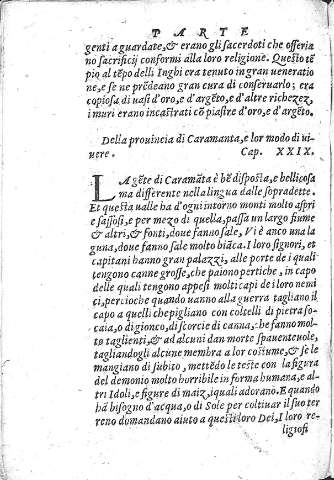 PARTE
genti a guardate, & erano gli sacerdoti che offeria
no sacrificij conformi alla loro religione. Questo tē
pio al tēpo delli Inghi era tenuto in gran ueneratio
ne, e se ne prēdeano gran cura di conseruarlo; era
copiosa di uasi d'oro, e d'argēto, e d'altre richezez,
i muri erano incastrati cō piastre d'oro, e d'argēto.
Della prouincia di Caramanta, e lor modo di ui-
uere. Cap. XXIX.
LA gēte di Caramāta è bē disposta, e bellicosa
ma differente nella lingua dalle sopradette.
Et questa ualle ha d'ogni intorno monti molto aspri
e sassosi, e per mezo di quella, passa un largo fiume
& altri, & fonti, doue fanno sale, Vi è anco una la
guna, doue fanno sale molto biāca. I loro signori, et
capitani hanno gran palazzi, alle porte de i quali
tengono canne grosse, che paiono pertiche, in capo
delle quali tengono appesi molti capi de i loro nemi
ci, percioche quando uanno alla guerra tagliano il
capo a quelli che pigliano con coltelli di pietra fo-
caia, o di gionco, di scorcie di canna, che fanno mol-
to taglienti, & ad alcuni dan morte spauenteuole,
tagliandogli alcune membra a lor costume, & se le
mangiano di subito, mettēdo le teste con la figura
del demonio molto horribile in forma humana, e al-
tri Idoli, e figure di maiz, iquali adorano. E quando
hā bisogno d'acqua, o di Sole per coltiuar il suo ter
reno domandano aiuto a questi loro Dei, I loro re-
ligiosi